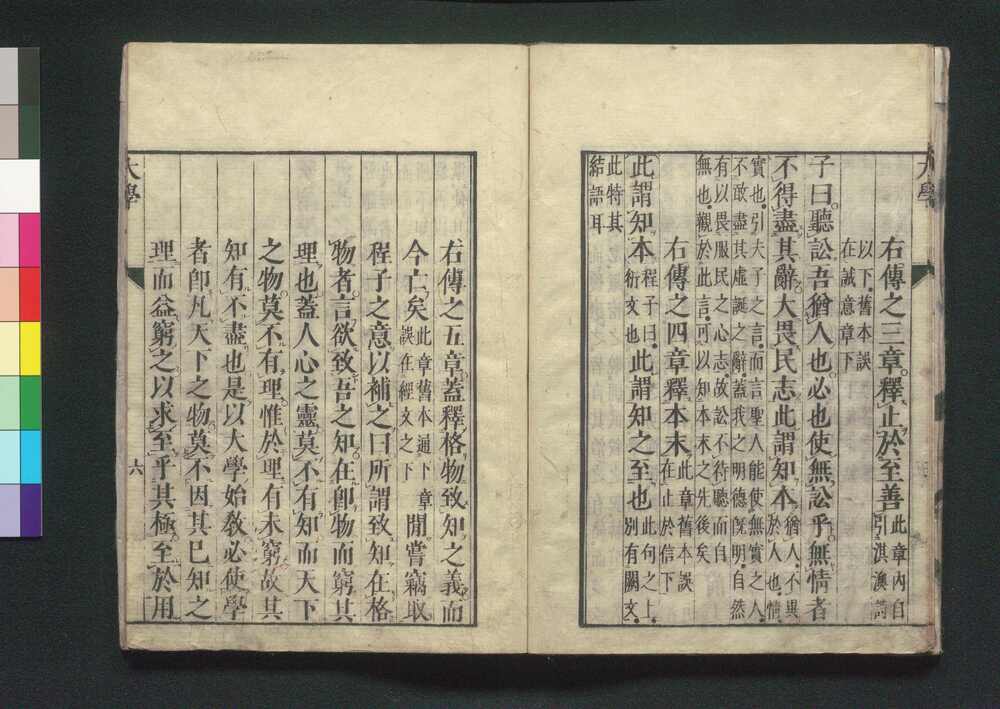 大學
右傳之三章釋止於至善此章內自引淇澳詩
以下舊本誤在誠意章下
子曰聽訟吾猶人也必也使無訟乎無情者
不得盡其辭大畏民志此謂知本猶人不異於人也情
實也引夫子之言而言聖人能使無實之人
不敢盡其虛誕之辭蓋我之明德旣明自然
有以畏服民之心志故訟不待聽而自
無也觀於此言可以知本末之先後矣
右傳之四章釋本末此章舊本誤在止於信下
此謂知本程子曰衍文也此謂知之至也此句之上別有闕文
此特其結語耳
右傳之五章蓋釋格物致知之義而
今亡矣此章舊本通下章誤在經文之下閒嘗竊取
程子之意以補之曰所謂致知在格
物者言欲致吾之知在卽物而窮其
理也蓋人心之靈莫不有知而天下
之物莫不有理惟於理有未窮故其
知有不盡也是以大學始敎必使學
者卽凡天下之物莫不因其已知之
理而益窮之以求至乎其極至於用
大學
六